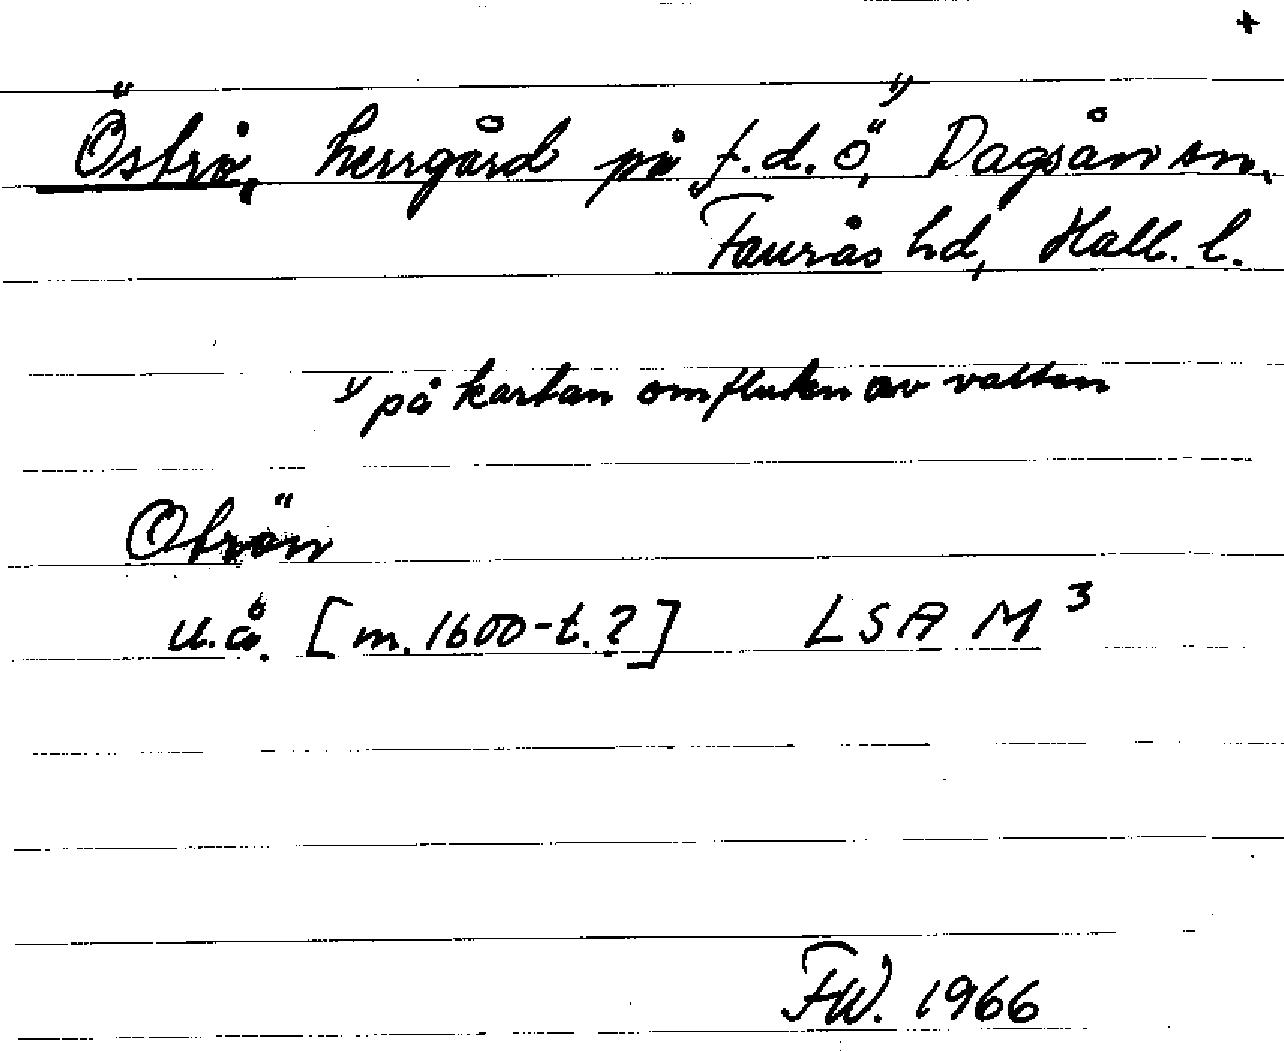 +
Östrå, herrgård på f.d. ö,¹⁾ Dagsås sn.
Faurås hd, Hall. l.
¹⁾ på kartan omfluten av vatten
Oströn
u.å. [m. 1600-t.?] LSA M³
FW. 1966